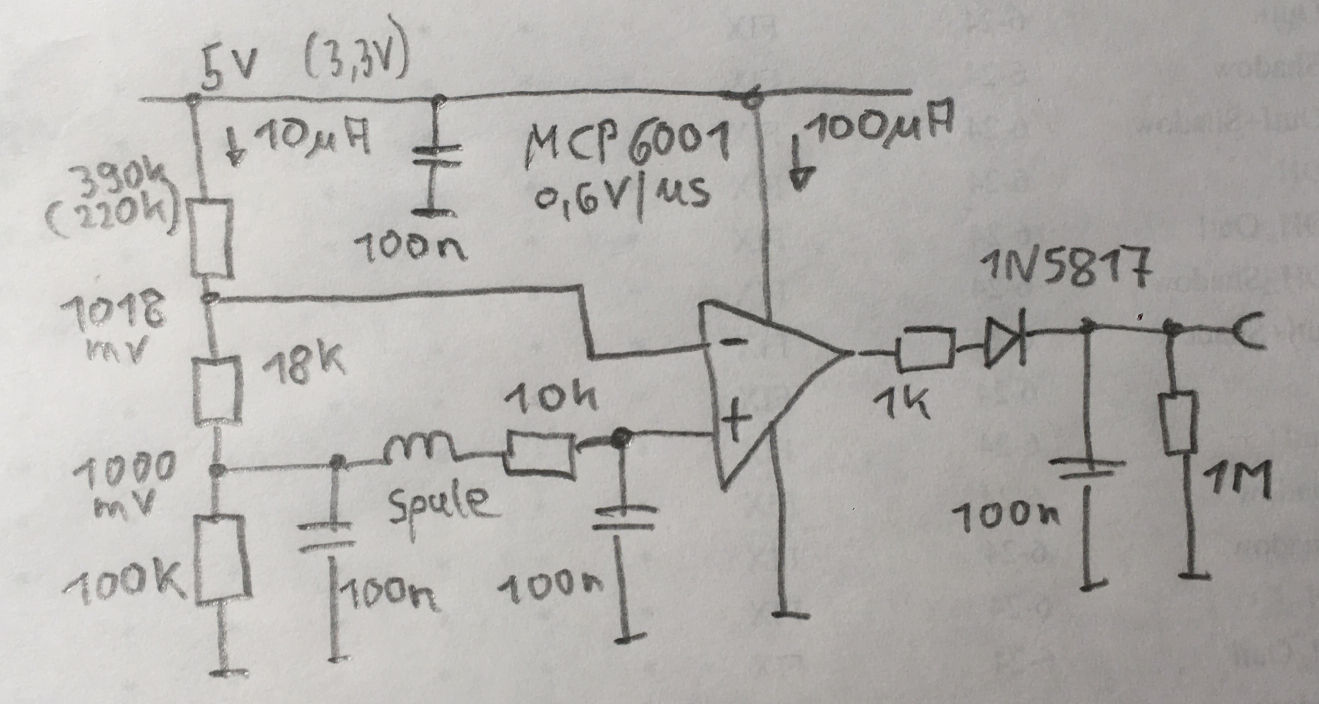 5V (3,3V)
10µA
100µA
MCP6001
0,6V/µs
390k
(220k)
100n
1N5817
1018
mV
18k
-
10k
1k
+
1000
mV
Spule
1M
100k
100n
100n
100n